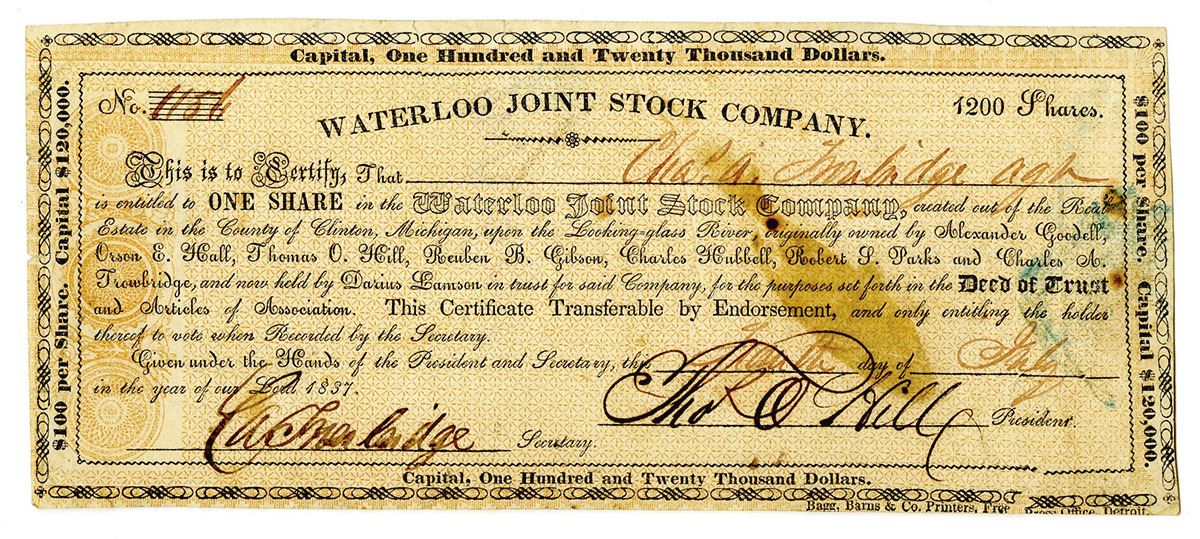 Capital, One Hundred and Twenty Thousand Dollars.
No. 1156
1200 Shares.
WATERLOO JOINT STOCK COMPANY.
This is to Certify, That Chas. A. Trowbridge agt
is entitled to ONE SHARE in the Waterloo Joint Stock Company, created out of the Real
Estate in the County of Clinton, Michigan, upon the Looking-glass River, originally owned by Alexander Goodell,
Orson E. Hall, Thomas O. Hill, Reuben B. Gibson, Charles Hubbell, Robert S. Parks and Charles A.
Trowbridge, and now held by Darius Lamson in trust for said Company, for the purposes set forth in the Deed of Trust
and Articles of Association. This Certificate Transferable by Endorsement, and only entitling the holder
thereof to vote when Recorded by the Secretary.
Given under the Hands of the President and Secretary, this day of July
in the year of our Lord 1837.
Tho O Hill President.
C A Trowbridge Secretary.
Capital, One Hundred and Twenty Thousand Dollars.
$100 per Share. Capital $120,000.
$100 per Share. Capital $120,000.
Bagg, Barns & Co. Printers, Free Press Office, Detroit.